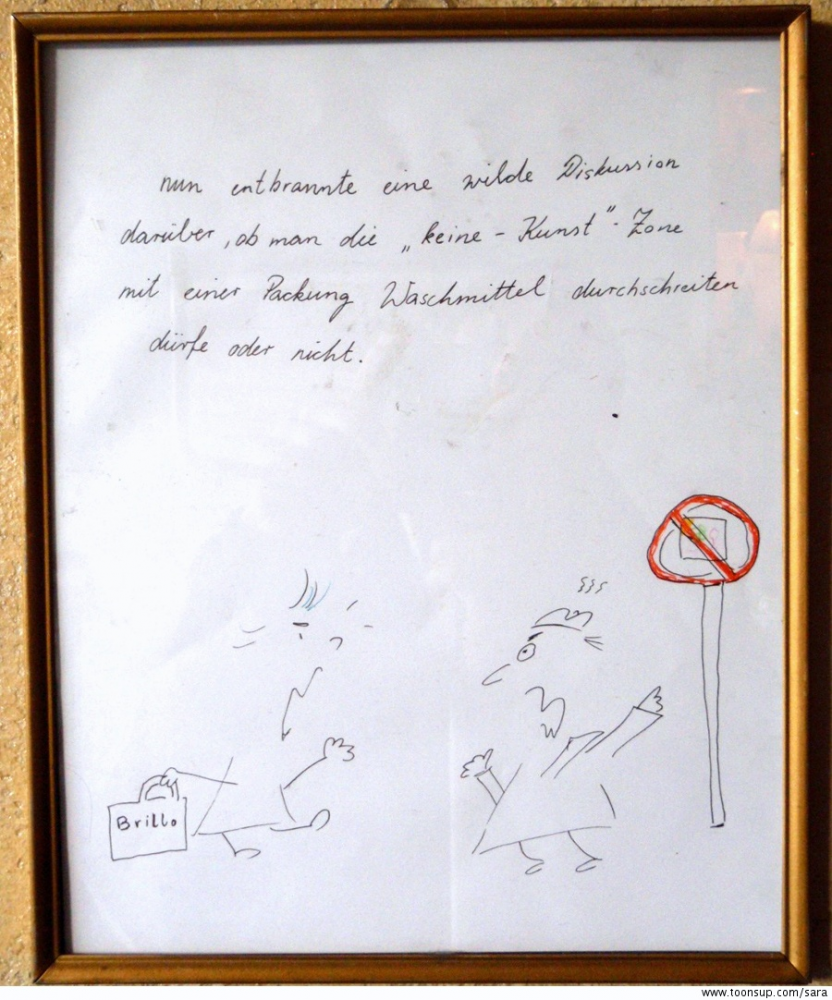 nun entbrannte eine wilde Diskussion
darüber, ob man die „keine - Kunst"- Zone
mit einer Packung Waschmittel durchschreiten
dürfe oder nicht.
Brillo
www.toonsup.com/sara